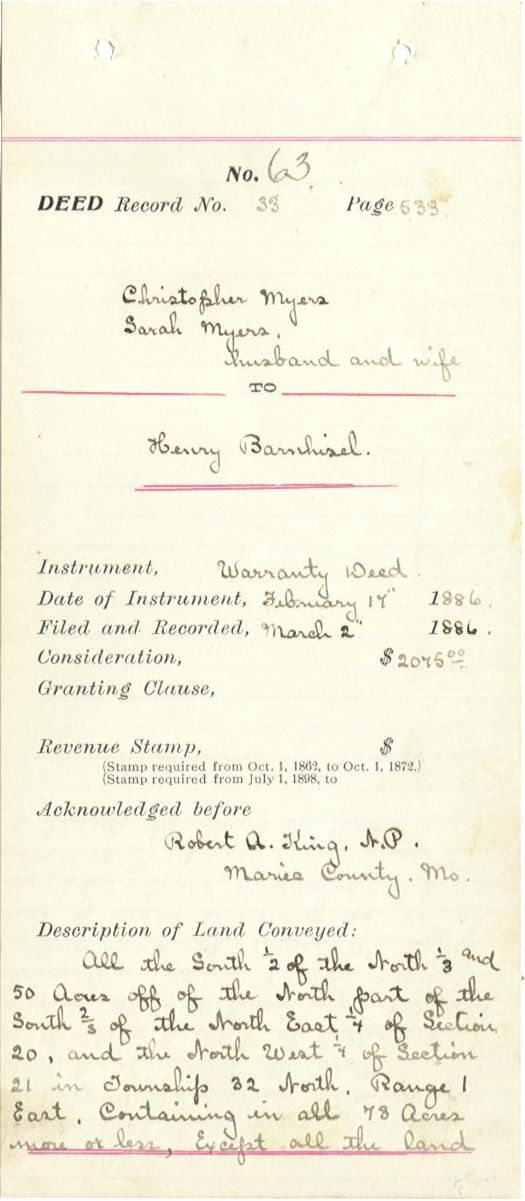 No. 63.
DEED Record No. 33 Page 533
Christopher Myers
Sarah Myers,
husband and wife
TO
Henry Barnhisel.
Instrument, Warranty Deed.
Date of Instrument, February 17" 1886.
Filed and Recorded, March 2" 1886.
Consideration, $2075.00
Granting Clause,
Revenue Stamp, $
(Stamp required from Oct. 1, 1862, to Oct. 1, 1872.)
(Stamp required from July 1, 1898, to
Acknowledged before
Robert A. King, N.P.
Maries County. Mo.
Description of Land Conveyed:
All the South 1/2 of the North 1/3 and
50 Acres off of the North part of the
South 2/3 of the North East 1/4 of Section
20, and the North West 1/4 of Section
21 in Township 32 North, Range 1
East, Containing in all 78 Acres
more or less, Except all the land